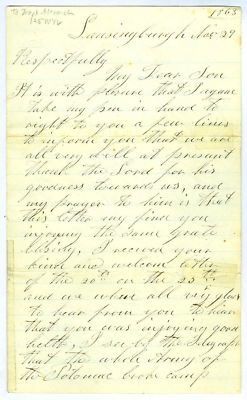 1863
Lansingburgh Nov 29
Respectfully
My Dear Son
It is with plesure that I again
take my pen in hand to
right to you a few lines
to inform you that we are
all very well at present
thank the Lord for his
goodness towards us, and
my prayer to him is that
this letter my find you
injoying the same grate
blesing. I received your
kind and welcome letter
of the 20th on the 25th
and we where all very glad
to hear from you to hear
that you was injoying good
helth, I see by the Telegraph
that the whole Army of
the Potomac broke camp